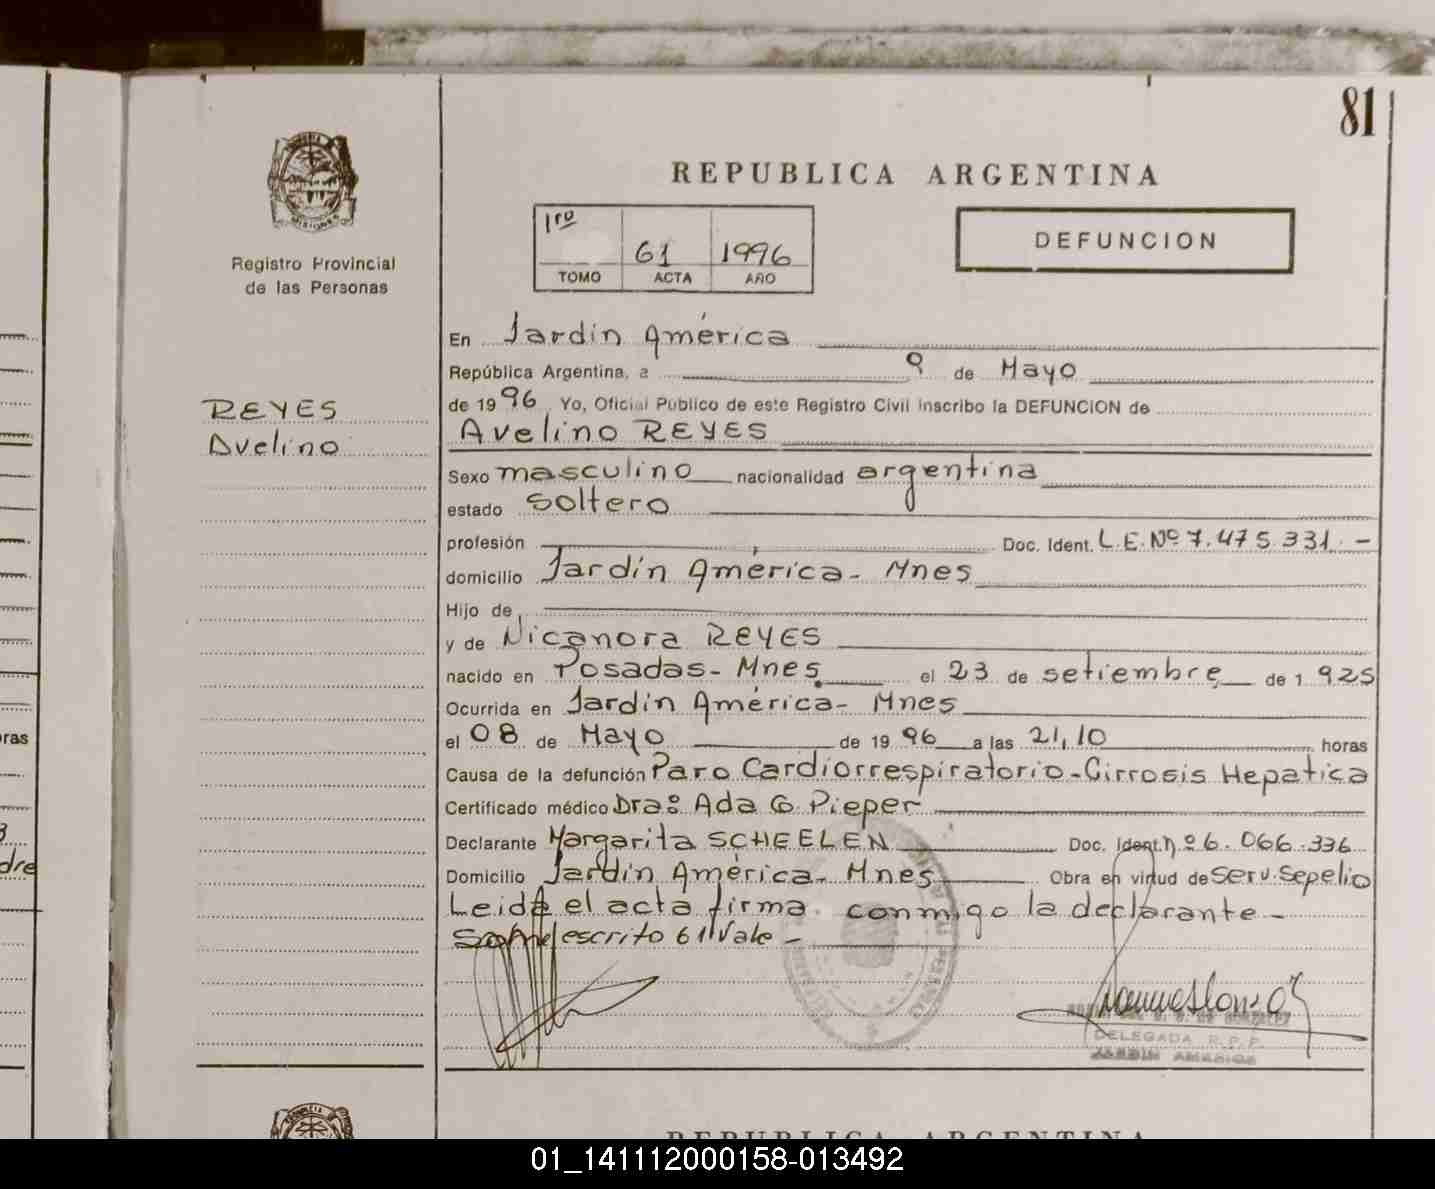 81
REPUBLICA ARGENTINA
1ro 61 1996
TOMO ACTA AÑO
DEFUNCION
MISIONES
Registro Provincial
de las Personas
REYES
Avelino
En Jardín América
República Argentina, a 9 de Mayo
de 1996 Yo, Oficial Público de este Registro Civil inscribo la DEFUNCION de
Avelino REYES
Sexo masculino nacionalidad argentina
estado soltero
profesión Doc. Ident. L.E. Nº 7.475.331.-
domicilio Jardín América - Mnes
Hijo de
y de Nicanora REYES
nacido en Posadas - Mnes. el 23 de setiembre de 1.925
Ocurrida en Jardín América - Mnes
el 08 de Mayo de 1996 a las 21,10 horas
Causa de la defunción Paro Cardiorrespiratorio - Cirrosis Hepatica
Certificado médico Dra: Ada G. Pieper
Declarante Margarita SCHEELEN Doc. Ident. nº 6.066.336
Domicilio Jardín América - Mnes Obra en virtud de Serv. Sepelio
Leida el acta firma conmigo la declarante -
Sobre escrito 61 Vale -
DELEGADA R.P.P.
JARDIN AMERICA
ras
dre
REPUBLICA ARGENTINA
01_141112000158-013492